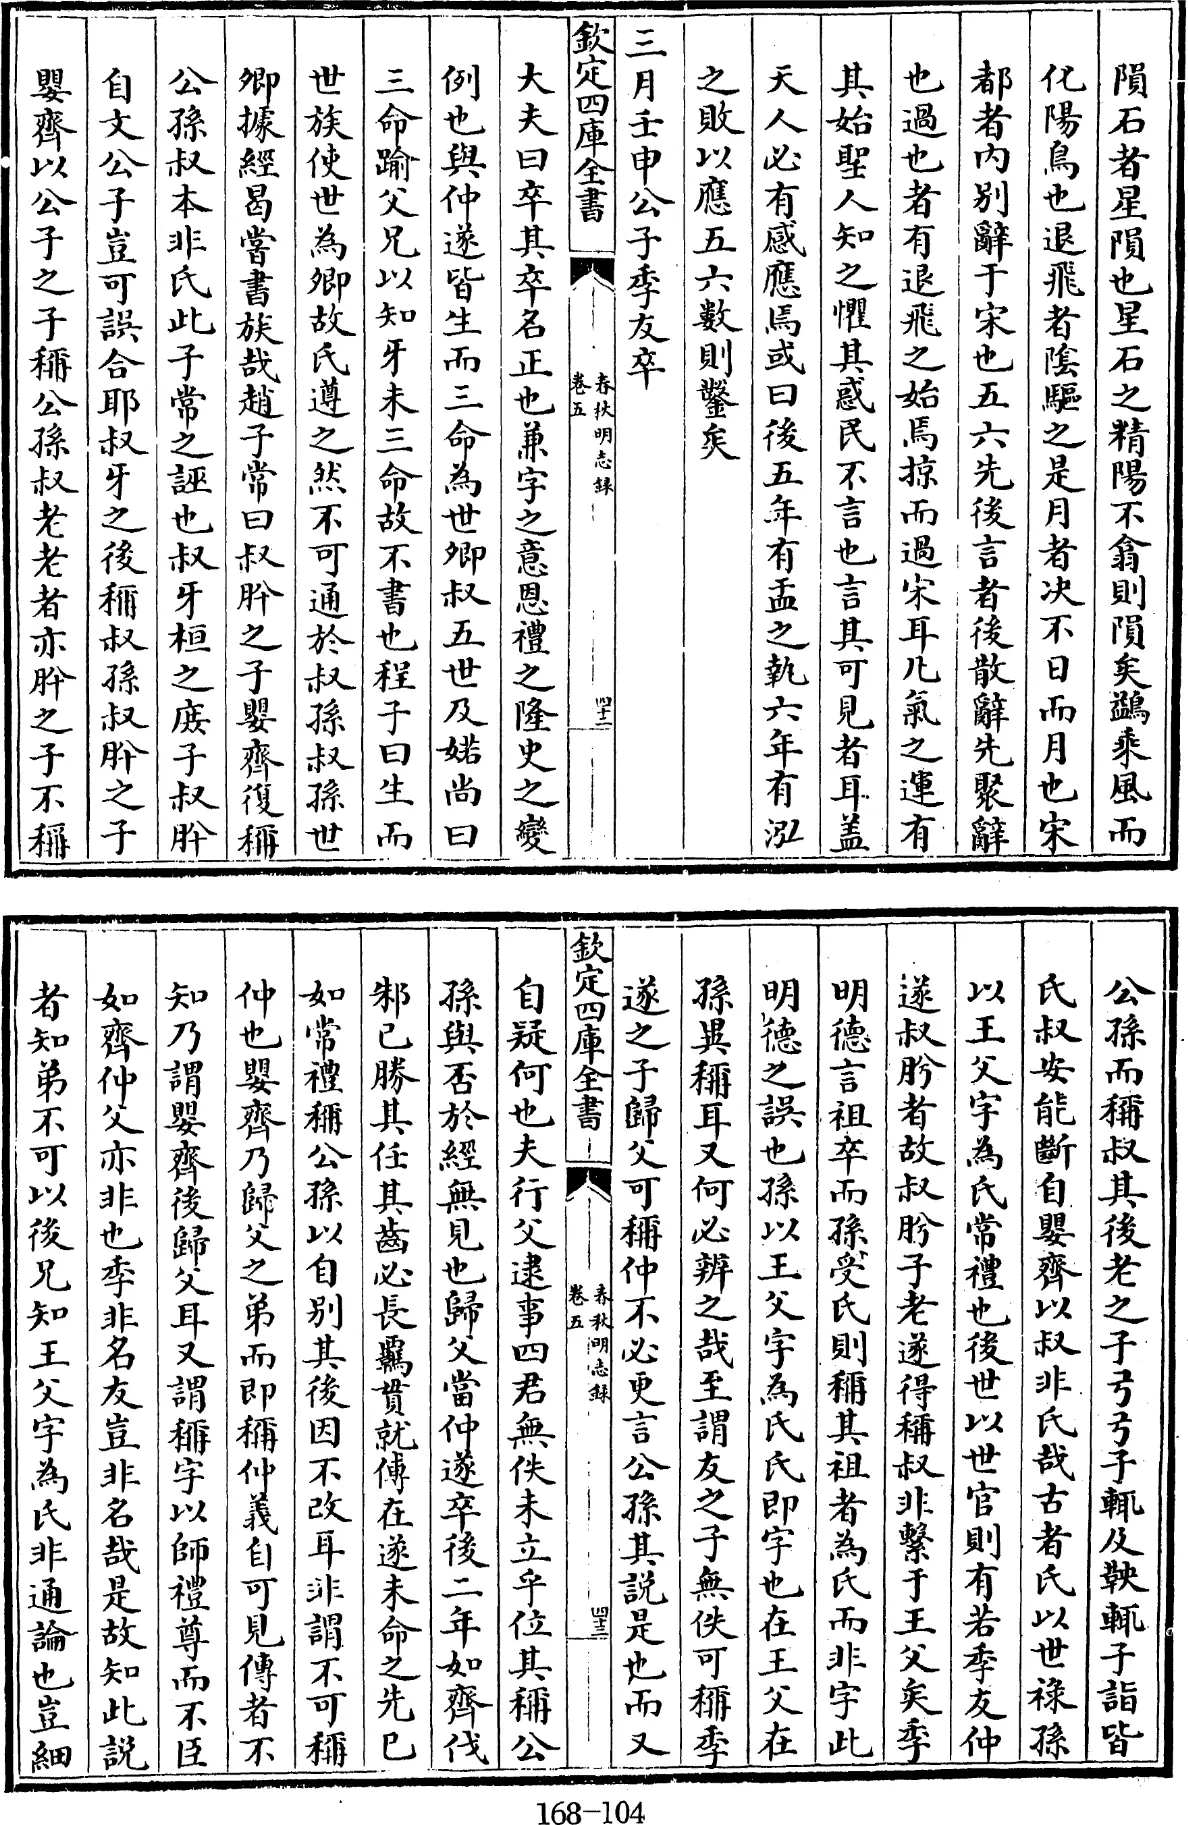 隕石者星隕也星石之精陽不翕則隕矣鷁乘風而
化陽鳥也退飛者陰驅之是月者决不日而月也宋
都者内别辭于宋也五六先後言者後散辭先聚辭
也過也者有退飛之始焉掠而過宋耳凡氣之運有
其始聖人知之懼其惑民不言也言其可見者耳盖
天人必有感應焉或曰後五年有盂之執六年有泓
之敗以應五六數則鑿矣
三月壬申公子季友卒
欽定四庫全書
春秋明志錄
卷五
四十二
大夫曰卒其卒名正也兼字之意恩禮之隆史之變
例也與仲遂皆生而三命為世卿叔五世及婼尚曰
三命踰父兄以知牙未三命故不書也程子曰生而
世族使世為卿故氏遵之然不可通於叔孫叔孫世
卿據經曷嘗書族哉趙子常曰叔肸之子嬰齊復稱
公孫叔本非氏此子常之誣也叔牙桓之庻子叔肸
自文公子豈可誤合耶叔牙之後稱叔孫叔肸之子
嬰齊以公子之子稱公孫叔老老者亦肸之子不稱
公孫而稱叔其後老之子弓弓子輒及鞅輒子詣皆
氏叔安能斷自嬰齊以叔非氏哉古者氏以世祿孫
以王父字為氏常禮也後世以世官則有若季友仲
遂叔肸者故叔肸子老遂得稱叔非繫于王父矣季
明德言祖卒而孫受氏則稱其祖者為氏而非字此
明德之誤也孫以王父字為氏氏即字也在王父在
孫異稱耳又何必辨之哉至謂友之子無佚可稱季
遂之子歸父可稱仲不必更言公孫其説是也而又
欽定四庫全書
春秋明志錄
卷五
四十三
自疑何也夫行父逮事四君無佚未立乎位其稱公
孫與否於經無見也歸父當仲遂卒後二年如齊伐
邾已勝其任其齒必長羈貫就傅在遂未命之先已
如常禮稱公孫以自别其後因不改耳非謂不可稱
仲也嬰齊乃歸父之弟而即稱仲義自可見傳者不
知乃謂嬰齊後歸父耳又謂稱字以師禮尊而不臣
如齊仲父亦非也季非名友豈非名哉是故知此説
者知弟不可以後兄知王父字為氏非通論也豈細
168-104